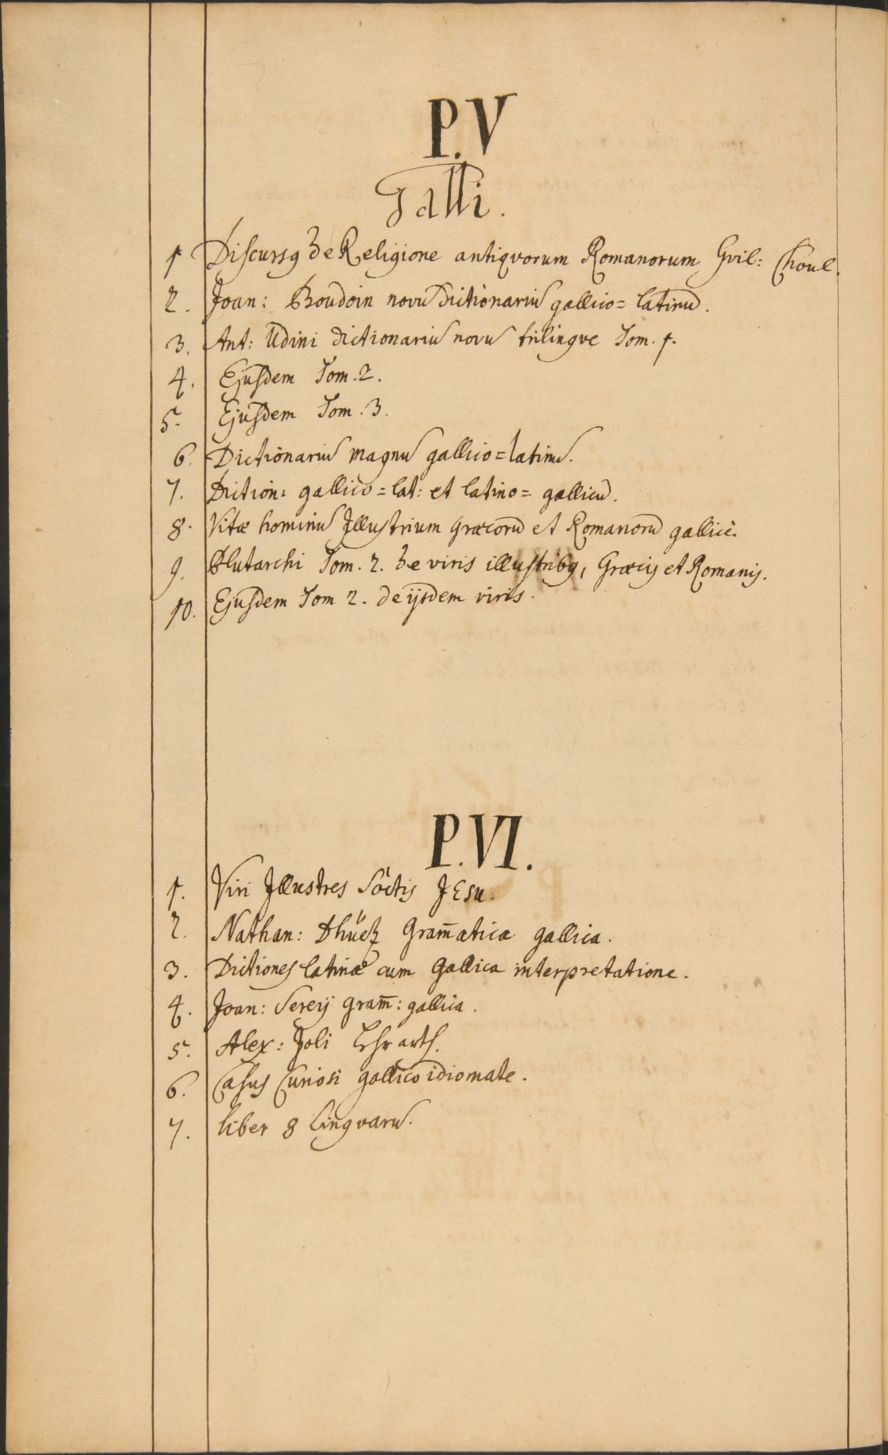 P.V
Galli.
1 Discursꝰ de Religione antiqvorum Romanorum Gvil: Choul.
2. Joan: Boudoin novũ Dictionariũ gallico=latinũ.
3. Ant: Udini dictionariũ novũ trilingve Tom. 1.
4. Ejusdem Tom. 2.
5. Ejusdem Tom. 3.
6. Dictionariũ magnũ gallico=latinũ.
7. Diction: gallico=lat: et latino=gallicũ.
8. Vitæ hominũ Illustrium Græcorũ et Romanorũ gallicè.
9. Plutarchi Tom. 2. de viris illustribꝰ, Græcis et Romanis.
10. Ejusdem Tom 2. de ijsdem viris.
P.VI.
1. Viri Illustres Soc̄tis JEsu.
2. Nathan: Dhüez Gram̄atica gallica.
3. Dictiones latinæ cum Gallica interpretatione.
4. Joan: Sereij Gram̄: gallica.
5. Alex: Joli
6. Casus Curiosi gallico idiomate.
7. liber 8 Lingvarũ.